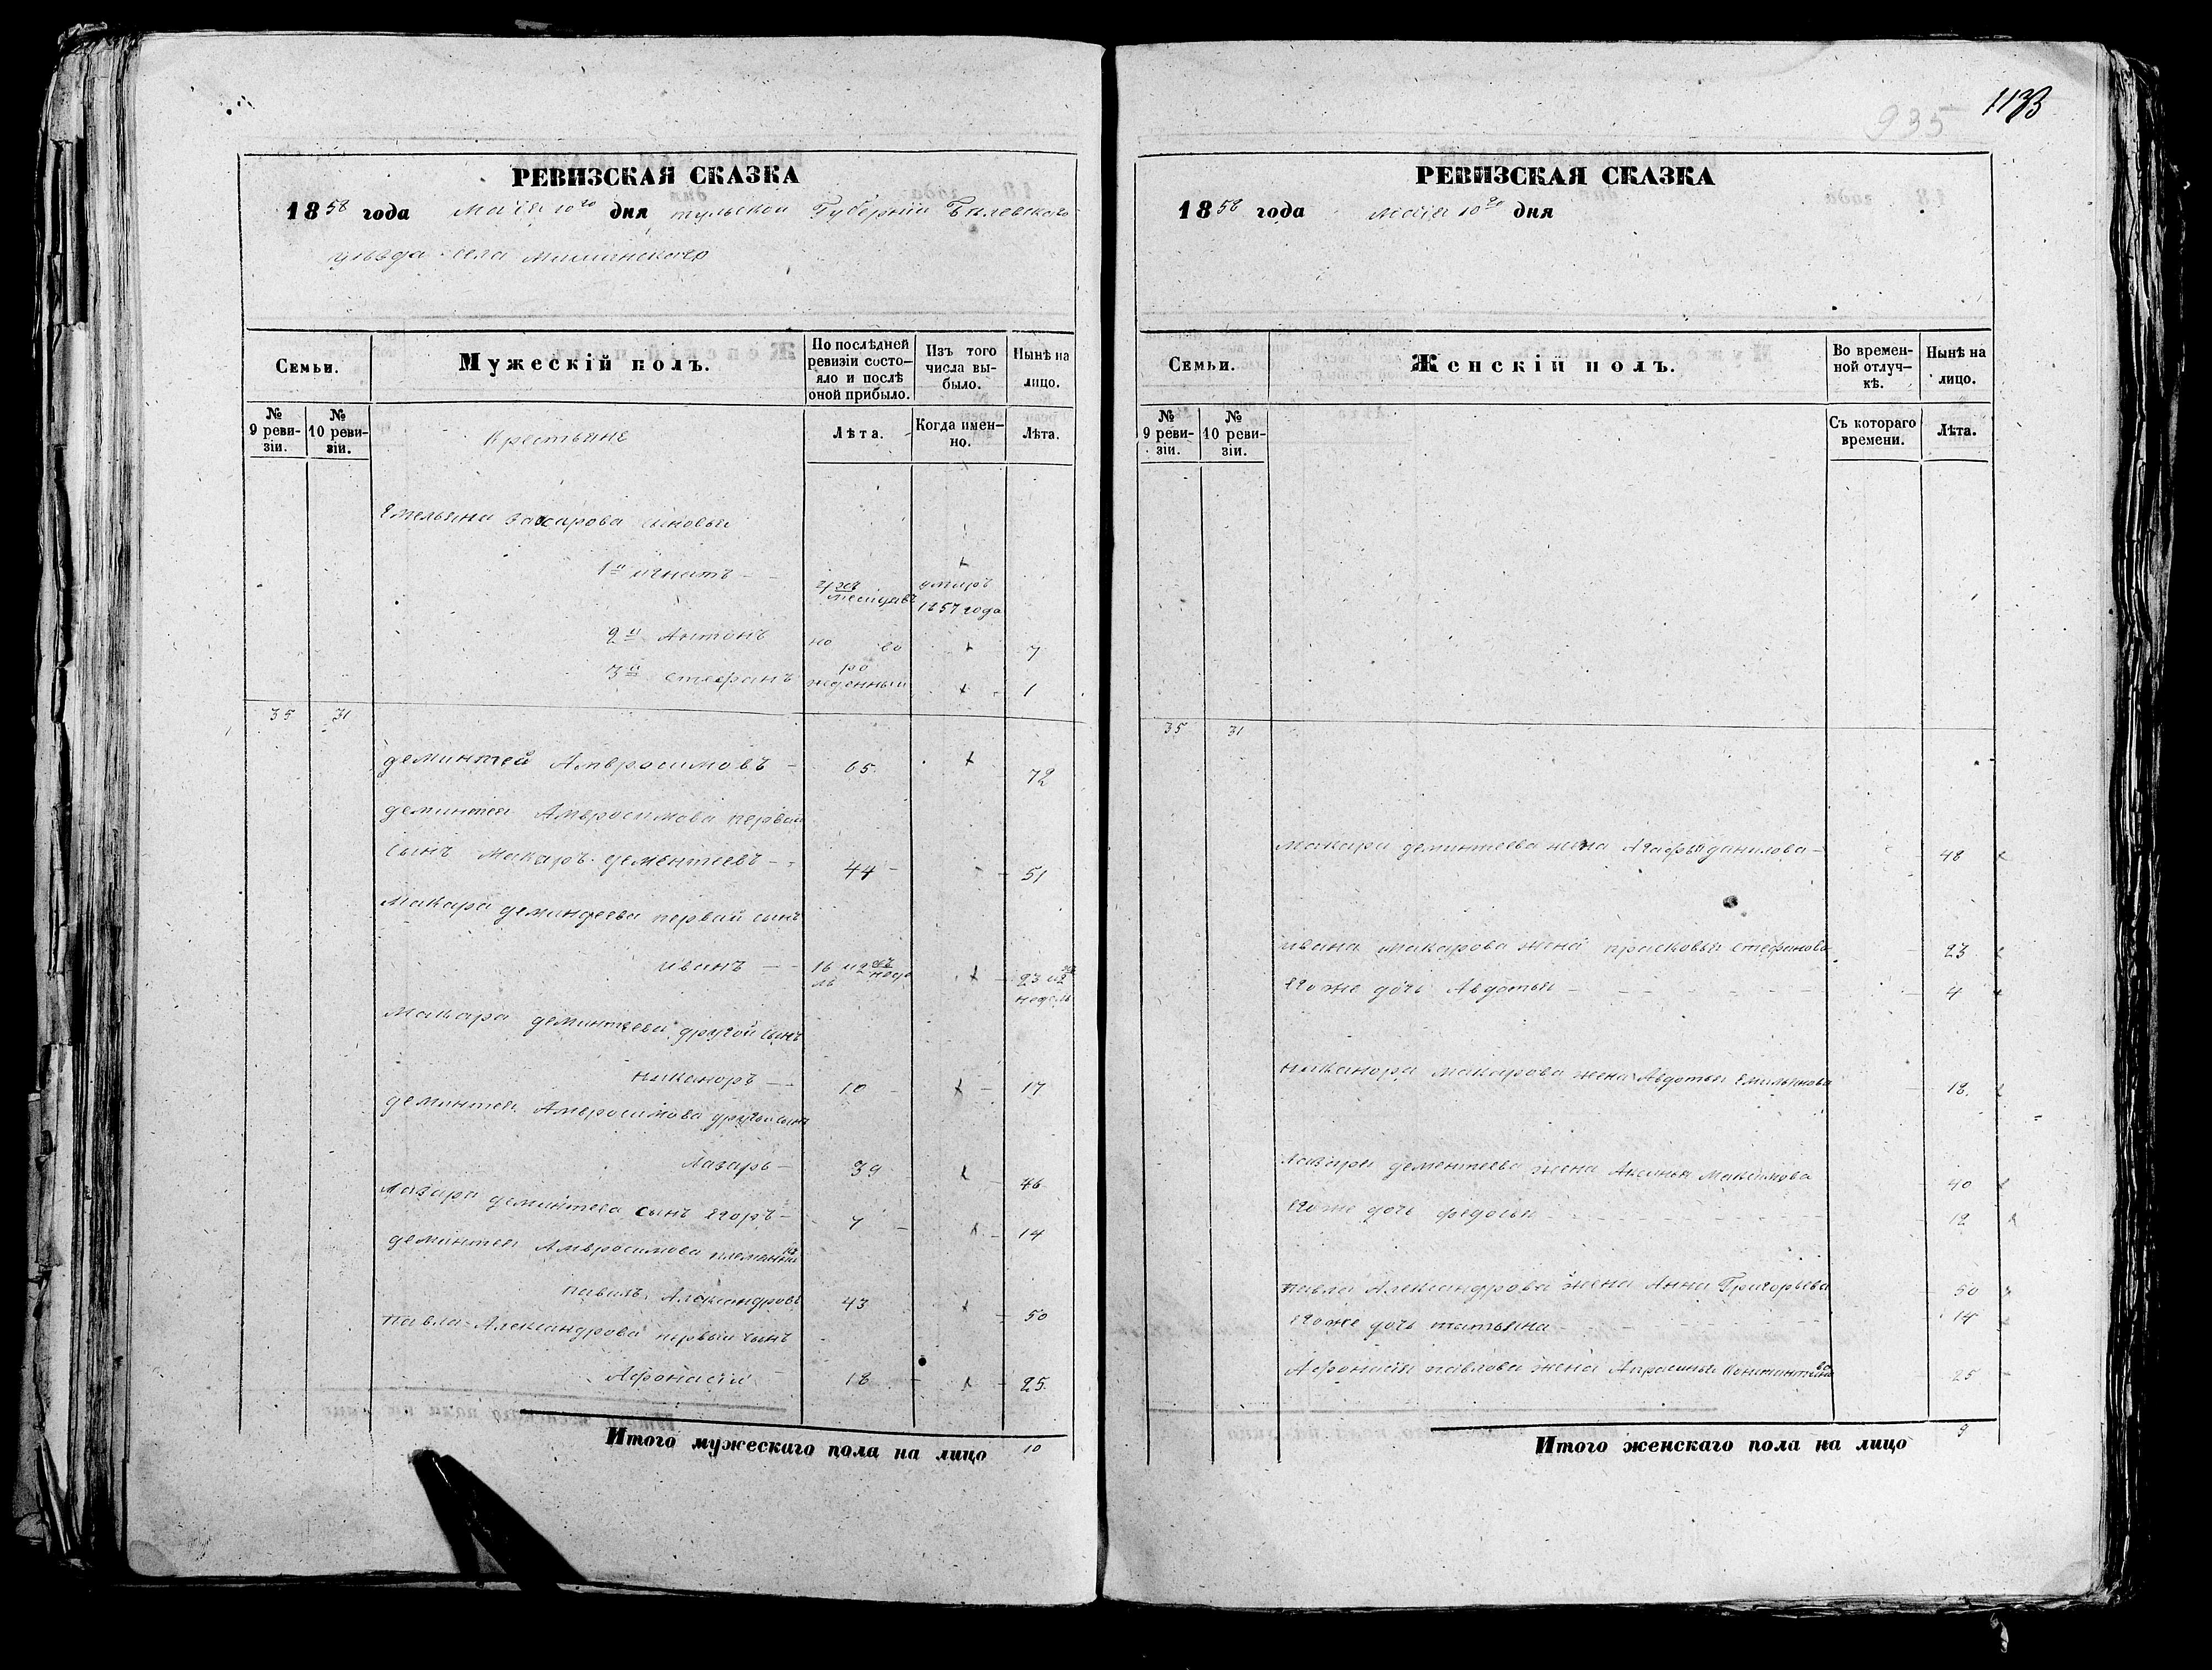 935
1133
РЕВИЗСКАЯ СКАЗКА
1858 года Маія 10го дня тульской Губерніи Бѣлевскаго
уѣзда села Мишенскаго
Семьи.
Мужескій полъ.
По послѣдней ревизіи состояло и послѣ оной прибыло.
Изъ того числа выбыло.
Нынѣ на лицо.
№ 9 ревизіи.
№ 10 ревизіи.
Крестьяне
Лѣта.
Когда именно.
Лѣта.
Емельяна Захарова сыновья
1й игнатъ месяцевъ умиръ 1857 года
2й Антонъ но во 7
3й стефанъ ро жденный 1
35 31
деминтей Амвросимовъ 65 72
деминтея Амвросимова первый
сынъ Макаръ дементеевъ 44 51
Макара деминтеева первый сынъ
иванъ 16 и 2хъ недель 23 и 2хъ недель
Макара деминтеева другой сынъ
никаноръ 10 17
деминтея Амвросимова другой сынъ
Лазарь 39 46
Лазаря деминтева сынъ Егоръ 7 14
деминтея Амвросимова племянникъ
павилъ Александровъ 43 50
павла Александрова первый сынъ
Афонасій 18 25
Итого мужескаго пола на лицо 10
РЕВИЗСКАЯ СКАЗКА
1858 года Маія 10го дня
Семьи.
Женскій полъ.
Во временной отлучкѣ.
Нынѣ на лицо.
№ 9 ревизіи.
№ 10 ревизіи.
Съ котораго времени.
Лѣта.
35 31
Макара деминтеева жена Агафья данилова 48
ивана Макарова жена прасковья стефанова 23
Егоже дочь Авдотья 4
никанора Макарова жена Авдотья Емильянова 18
Лазаря дементеева жена Аксинья Максимова 40
Егоже дочь федосья 12
павла Александрова жена Анна Григорьева 50
Егоже дочь татьяна 14
Афонасія павлова жена Апросинья 25
Итого женскаго пола на лицо 9